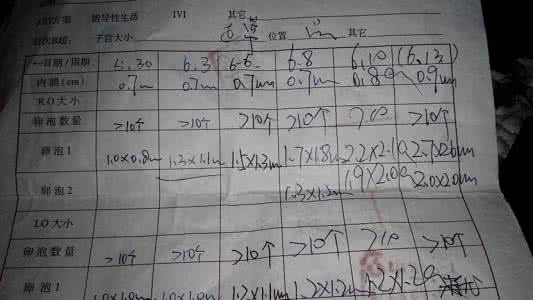 诱导性生活 IVI 其它
子宫大小 位置 其它
日期/周期 5.30 6.3 6.6 6.8 6.10 (6.13)
内膜(cm) 0.7cm 0.7cm 0.7cm 0.7cm 0.8 0.9cm
RO大小
卵泡数量 >10个 >10个 >10个 >10个 >10 >10个
卵泡1 1.0×0.8cm 1.3×1.1cm 1.5×1.3cm 1.7×1.8cm 2.2×2.1 2.7×2.0cm
卵泡2 1.3×1.2cm 1.9×2.0 2.0×2.0cm
LO大小
卵泡数量 >10个 >10个 >10个 >10个 >10 >10个
卵泡1 1.0×1.0cm 1.0×1.0cm 1.2×1.1cm 1.2×1.2cm 1.2×1.2